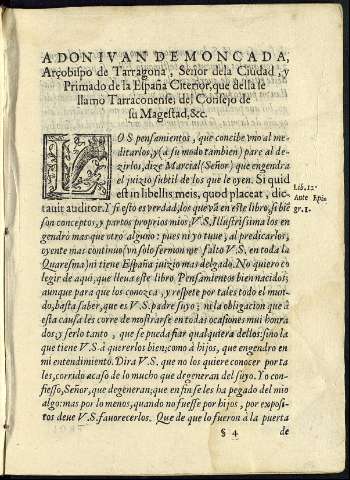 A DON IVAN DE MONCADA,
Arçobispo de Tarragona, Señor dela Ciudad, y
Primado de la España Citerior, que della se
llamo Tarraconense: del Consejo de
su Magestad, &c.
LOS pensamientos, que concibe vno al me
ditarlos, y (a su modo tambien) pare al de-
zirlos, dize Marcial (Señor) que engendra
el juizio subtil de los que le oyen. Si quid
est in libellis meis, quod placeat, dic-
tauit auditor. Y si esto es verdad, los que và en este libro, si biē
son conceptos, y partos proprios mios, V.S. Illustrissima los en
gendrò mas que otro alguno: pues ni yo tuue, al predicarlos,
oyente mas continuo (vn solo sermon me falto V.S. en toda la
Quaresma) ni tiene España juizio mas delgado. No quiero co
legir de aqui, que lleua este libro Pensamientos bien nacidos;
aunque para que los conozca, y respete por tales todo el mun-
do, basta saber, que es V.S. padre suyo; ni la obligacion que à
esta causa les corre de mostrarse en todas ocasiones mui honra
dos, y serlo tanto, que se pueda fiar qualquiera dellos: sino la
que tiene V.S. à quererlos bien; como à hijos, que engendro en
mi entendimiento. Dira V.S. que no los quiere conocer por ta
les, corrido acaso de lo mucho que degeneran del suyo. Yo con-
fiesso, Señor, que degeneran; que en fin se les ha pegado del mio
algo: mas por lo menos, quando no fuesse por hijos, por exposi-
tos deue V.S. fauorecerlos. Que de que lo fueron à la puerta
Lib. 12.
Ante Epi
gr. 1.
§ 4
de